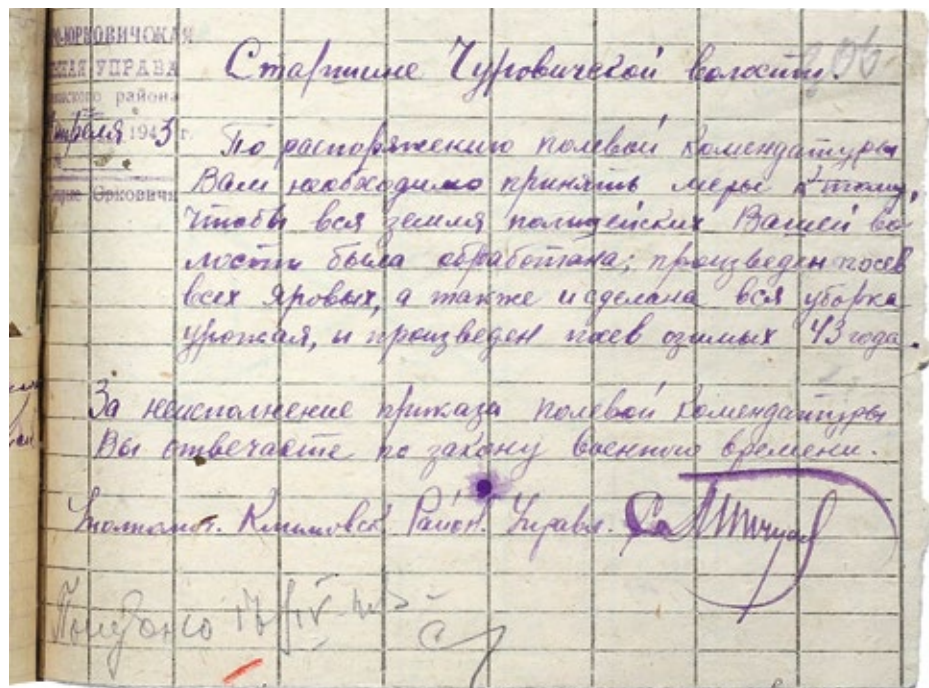 -ЮРКОВИЧСКАЯ
УПРАВА
района
апреля 1943 г.
Юрковичи
Старшине Чуровичской волости.
206
По распоряжению полевой комендатуры
Вам необходимо принять меры к тому,
чтобы вся земля полицейских Вашей во-
лости была обработана; произведен посев
всех яровых, а также и сделана вся уборка
урожая, и произведен посев озимых 43 года.
За неисполнение приказа полевой комендатуры
Вы отвечаете по закону военного времени.
Уполномоч. Климовск. Район. Управл.